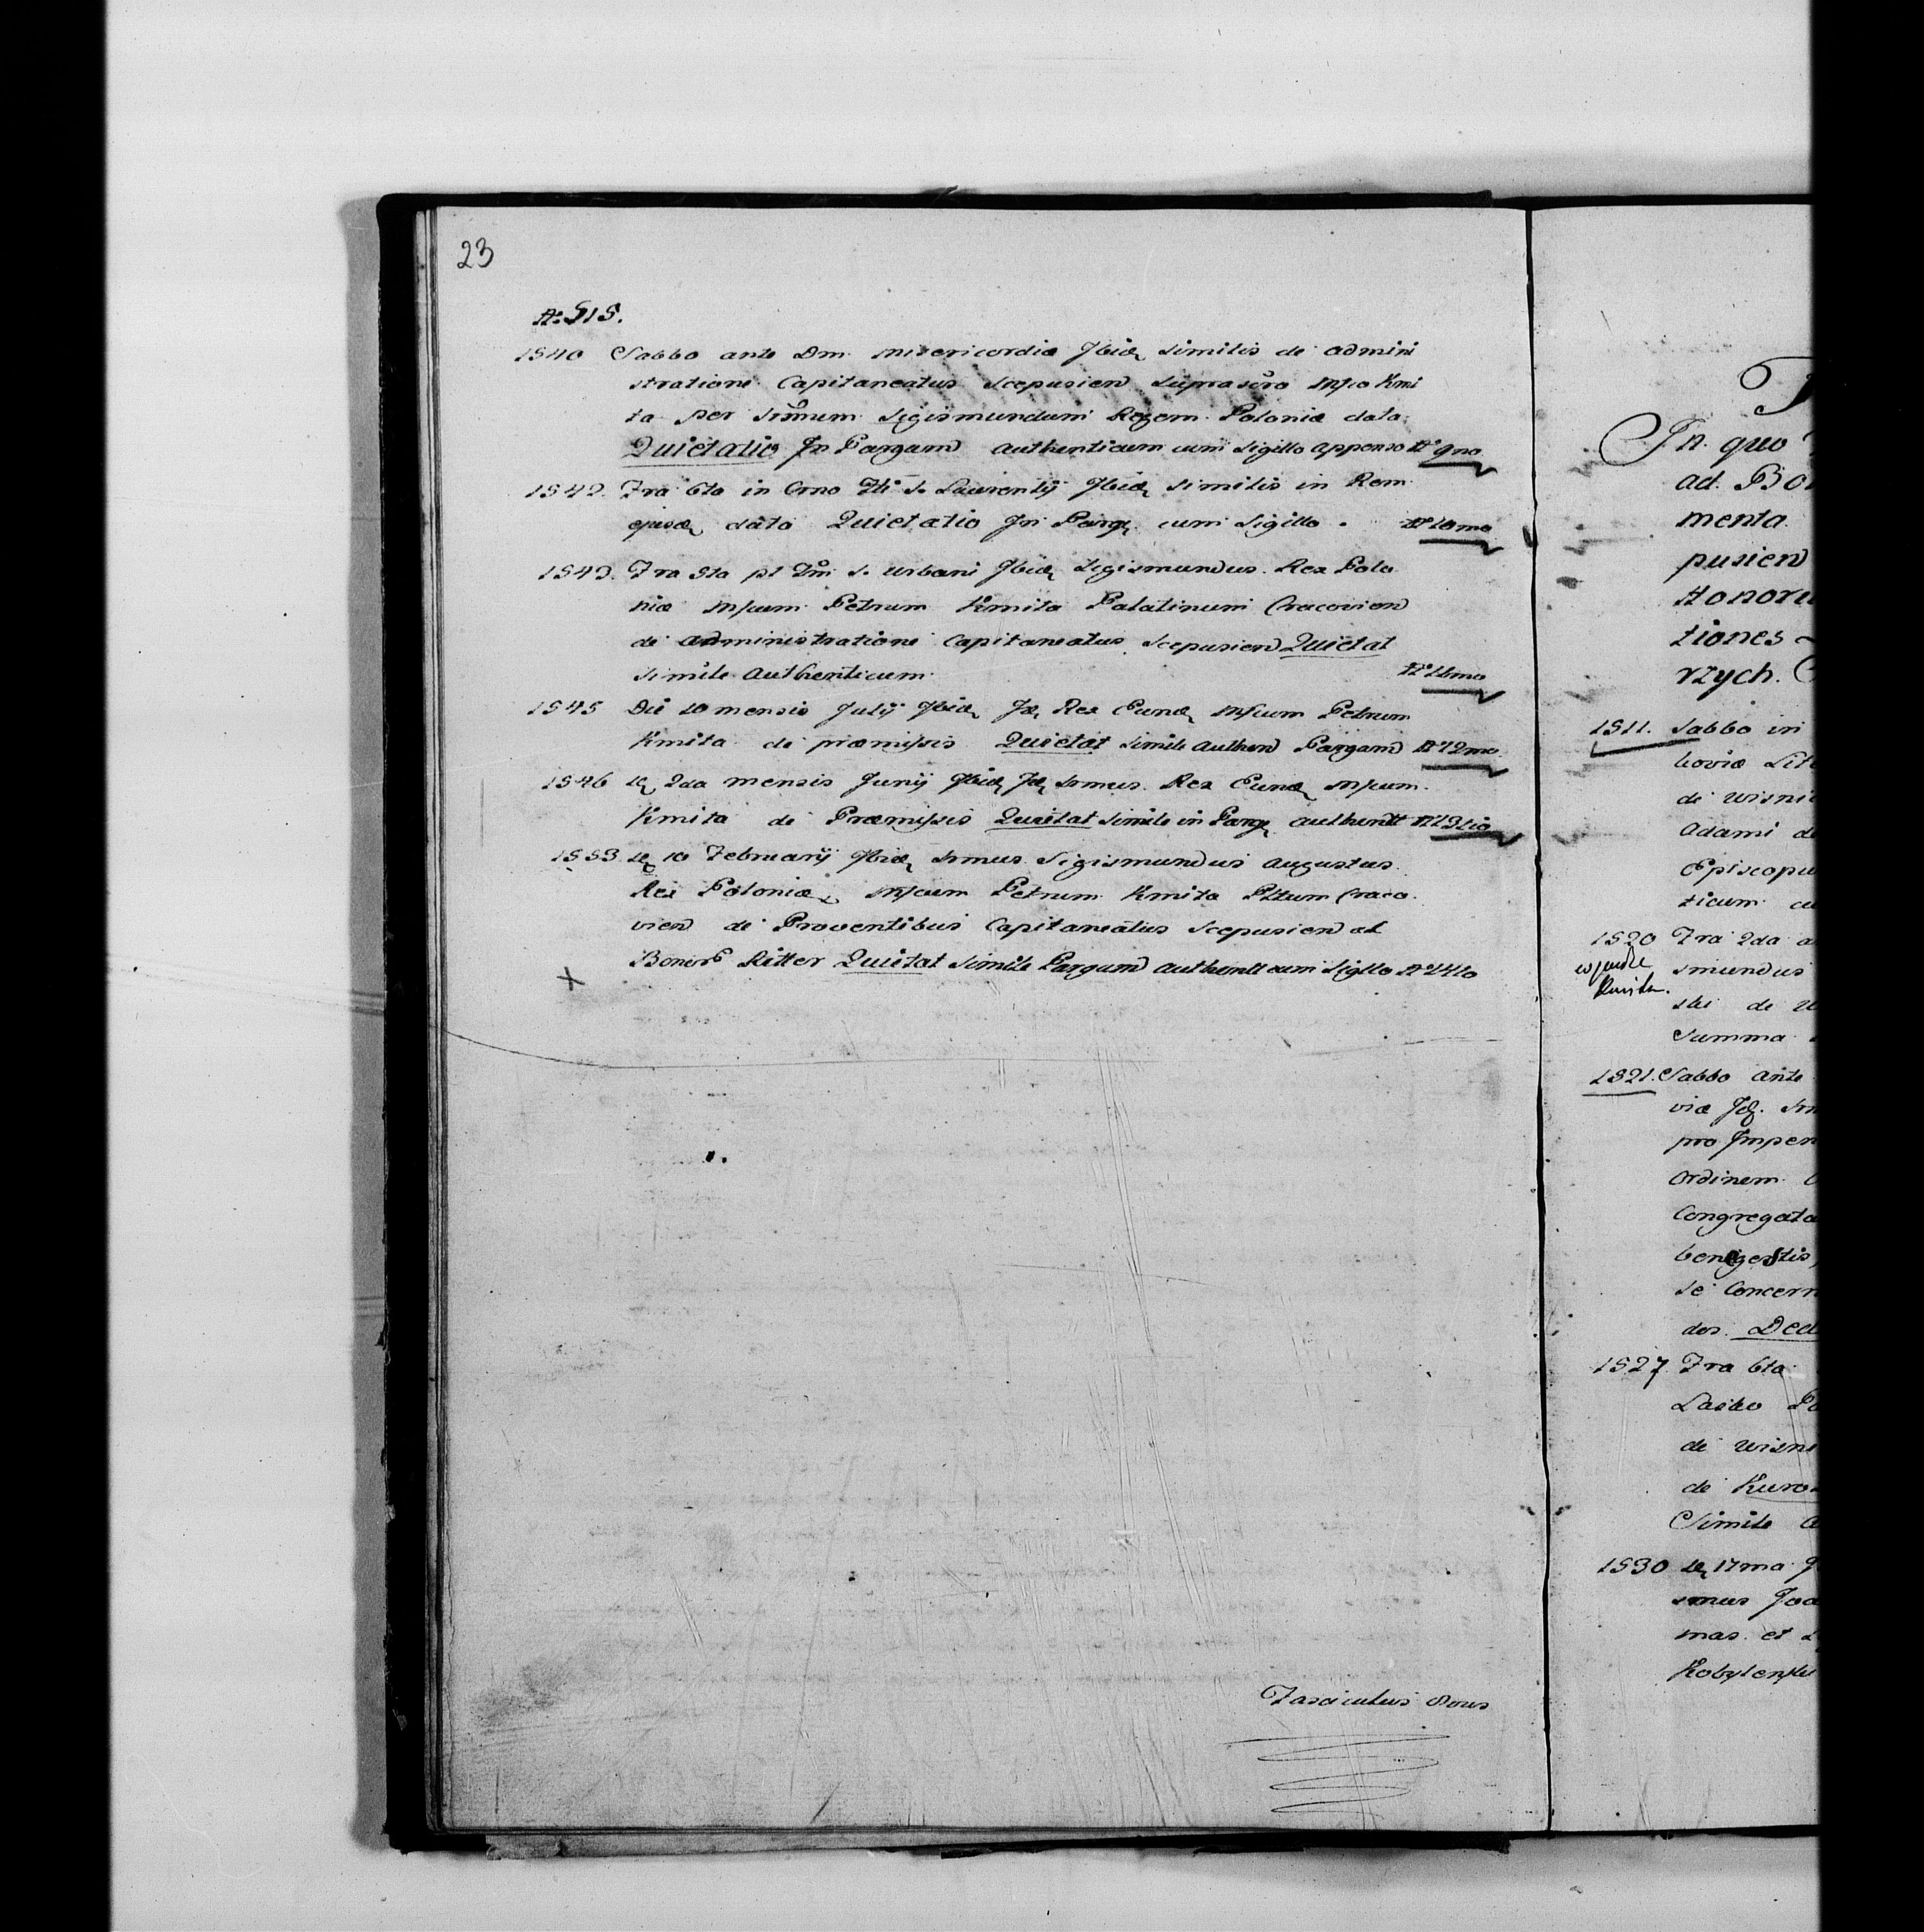 23
Ao 515.
1540 Sabbo ante Dm. misericordiæ Ibidq similis de admini
stratione Capitaneatus Scepusien suprascro Mfco Kmi
ta per Srmum Sigismundum Regem Poloniæ data
Quietatio In Pargam authenticum cum Sigillo appenso No 9no
1542. Fra 6ta in Crno Fti S. Laurentij Ibidq similis in Rem
ejusdq data Quietatio In Parg. cum Sigillo No 10mo
1543. Fra 3ta pt Fm S. Urbani Ibidq Sigismundus Rex Polo
niæ Mfcum Petrum Kmita Palatinum Cracovien
de administratione Capitaneatus Scepusien Quietat
simile authenticum No 11mo
1545 Die 10 mensis Julij Ibidq Idq Rex Eundq Mfcum Petrum
Kmita de præmissis Quietat simile authen Pargam No 12mo
1546 2da mensis Junij Ibidq Idq Srmus Rex Eundq Mfcum
Kmita de Præmissis Quietat simile in Parg authentt No 13tio
1553 10 Februarij Ibidq Srmus Sigismundus Augustus
Rex Poloniæ Mfcum Petrum Kmita Pttum Craco
vien de Proventibus Capitaneatus Scepusien at
Boner Ritter Quietat simile Pargam authentt cum Sigllo No 14to
Fasciculus
In quo
ad. Bo
menta
pusien
Honoru
tiones
rzych.
1511. Sabbo in
boviæ Lit
de Wisni
Adami d
Episcopu
ticum cu
1520 Fra 2da a
smundus
ski de W
Summa
1521. Sabbo ante
viæ Idq. Sr
pro Impen
Ordinem
Congregata
se Concern
dos. Ded
1527 Fra 6ta
Lasko Pa
de Wisni
de Kuro
Simile a
1530 17ma
smus Joa
mas et
Kobylenski